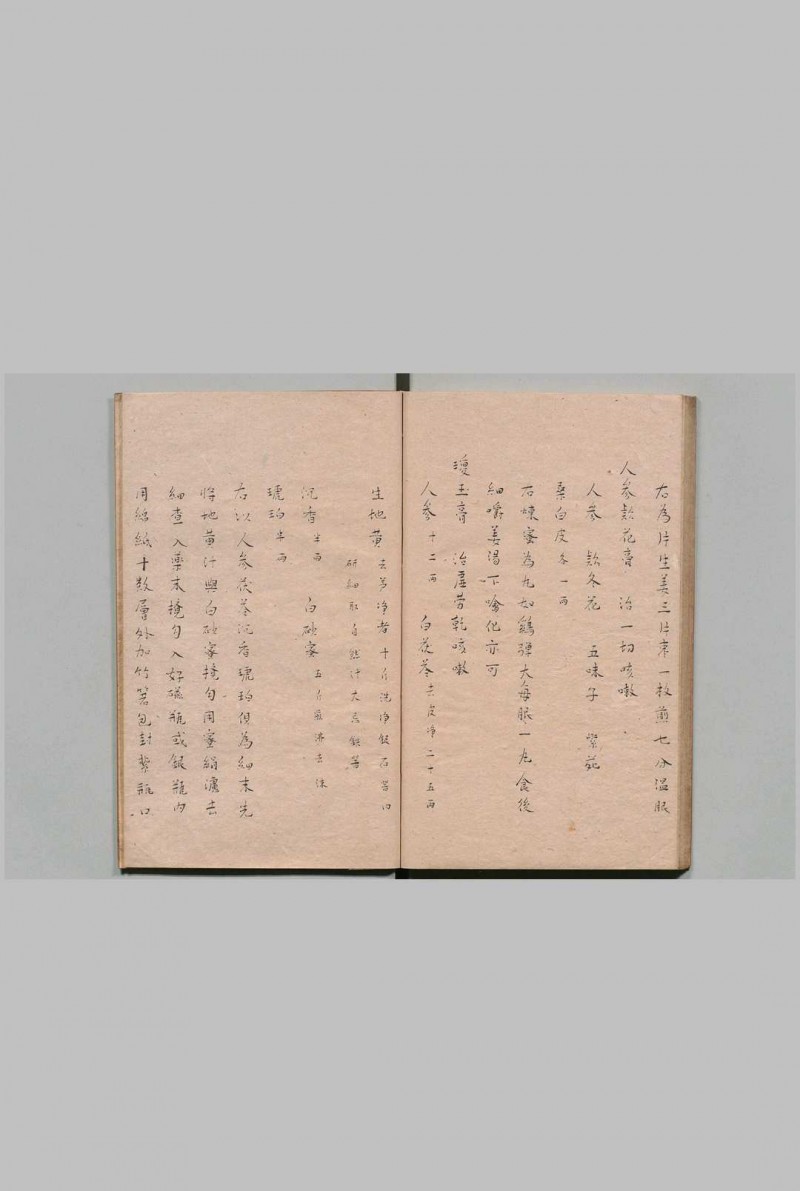 右為片生姜三片棗一枚煎七分溫服
人參款花膏　治一切咳嗽
人參　款冬花　五味子　紫菀
桑白皮各一两
右煉蜜為丸如鷄彈大每服一丸食後
細嚼姜湯下噙化亦可
瓊玉膏　治虛勞乾咳嗽
人參十二两　白茯苓去皮净二十五两
生地黄去芦净者十斤洗净銀石器内
研細取自然汁大忌鉄器
沉香半两　白砂蜜五斤煎沸去沫
琥珀半两
右以人參茯苓沉香琥珀俱為細末先
将地黄汁與白砂蜜攪匀用蜜絹濾去
細查入藥末攪匀入好磁瓶或銀瓶内
用綿紙十数層外加竹箬包封紮瓶口